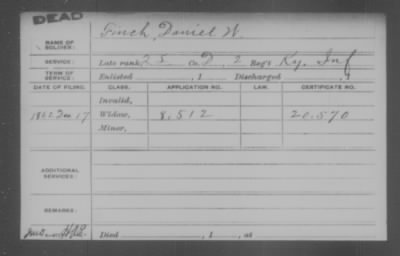 DEAD
NAME OF SOLDIER: Finch, Daniel W.
SERVICE: Late rank, Co. D, 2 Reg't Ky. Inf
TERM OF SERVICE: Enlisted , 1 Discharged , 1
DATE OF FILING. CLASS. APPLICATION NO. LAW. CERTIFICATE NO.
Invalid,
1862 Dec 17 Widow, 8,512 20.570
Minor,
ADDITIONAL SERVICES:
REMARKS:
Died , 1 , at